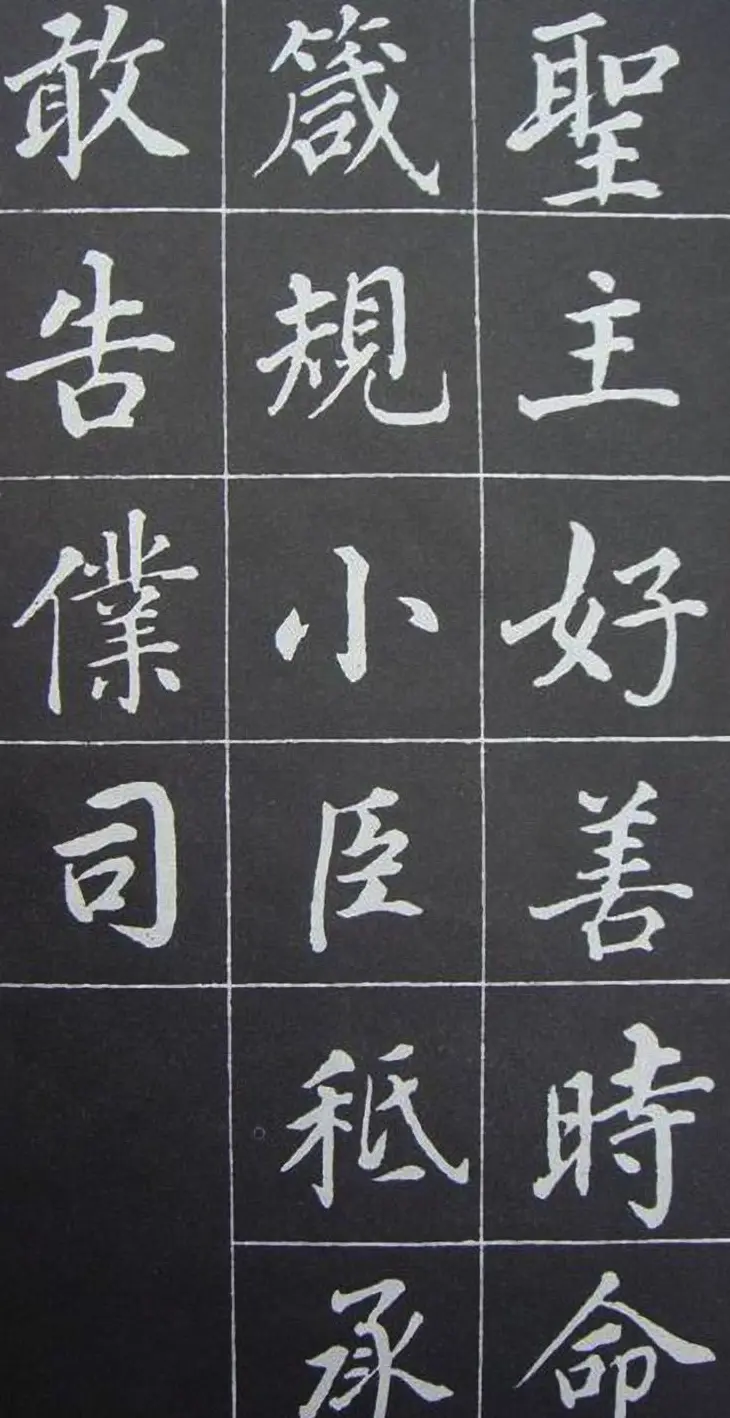 聖主好善時命
箴規小臣秪承
敢告僕司